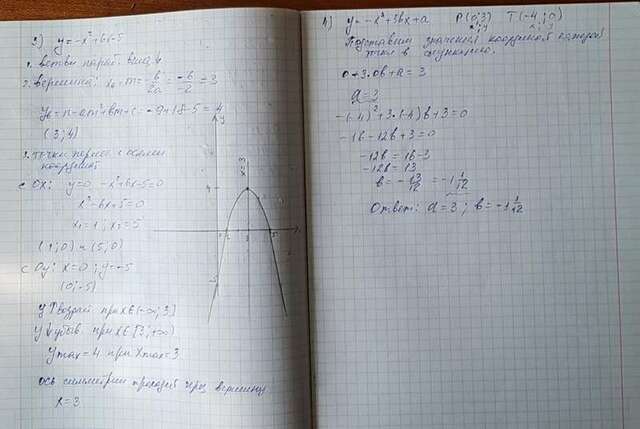 3) y = -x² + 6x - 5
1. ветви параб. вниз ↓
2. вершина: x₀ = m = -b/2a = -6/-2 = 3
y₀ = n = am² + bm + c = -9 + 18 - 5 = 4
(3; 4)
3. точки перес. с осями
координат
с OX: y=0, -x²+6x-5=0
x² - 6x + 5 = 0
x₁ = 1; x₂ = 5
(1; 0) и (5; 0)
с Oy: x=0; y=-5
(0; -5)
y ↑ возраст при x ∈ (-∞; 3]
y ↓ убыв при x ∈ [3; +∞)
y max = 4 при x max = 3
ось симметрии проходит через вершину
x = 3
y
x=3
4
1
3
5
-5
4) y = -x² + 3bx + a P(0; 3) T(-4; 0)
Подставим значения координат каждой
точки в функцию.
0 + 3·0b + a = 3
a = 3
-(-4)² + 3·(-4)b + 3 = 0
-16 - 12b + 3 = 0
-12b = 16 - 3
-12b = 13
b = -13/12 = -1 1/12
Ответ: a = 3; b = -1 1/12